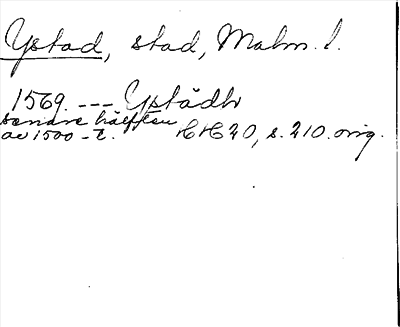 Ystad, stad, Malm. l.
1569. --- Ystådh
senare hälften
av 1500-t. HH 20, s. 210. orig.